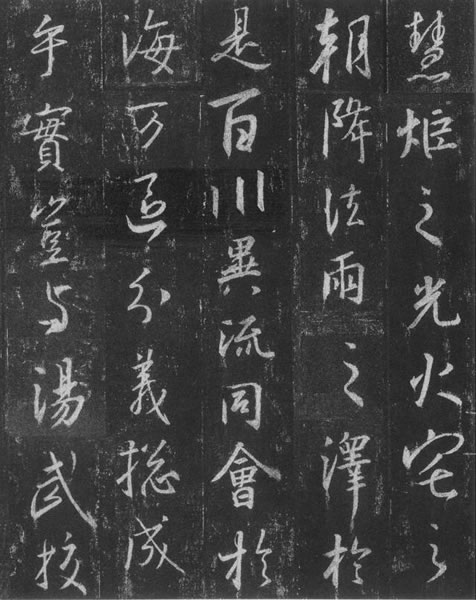 慧炬之光火宅之
朝降法雨之澤於
是百川異流同會於
海万區分義揔成
乎實豈与湯武挍